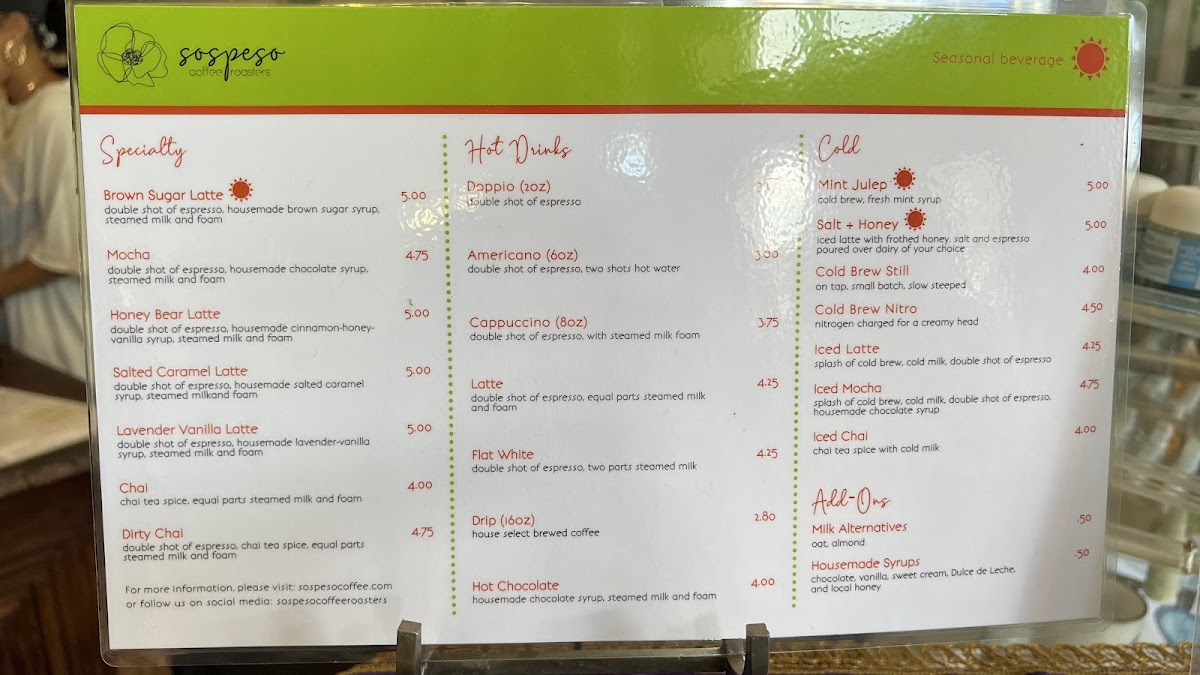 sospeso
coffee roasters
Seasonal beverage
Specialty
Brown Sugar Latte 5.00
double shot of espresso, housemade brown sugar syrup,
steamed milk and foam
Mocha 4.75
double shot of espresso, housemade chocolate syrup,
steamed milk and foam
Honey Bear Latte 5.00
double shot of espresso, housemade cinnamon-honey-
vanilla syrup, steamed milk and foam
Salted Caramel Latte 5.00
double shot of espresso, housemade salted caramel
syrup, steamed milkand foam
Lavender Vanilla Latte 5.00
double shot of espresso, housemade lavender-vanilla
syrup, steamed milk and foam
Chai 4.00
chai tea spice, equal parts steamed milk and foam
Dirty Chai 4.75
double shot of espresso, chai tea spice, equal parts
steamed milk and foam
For more information, please visit: sospesocoffee.com
or follow us on social media: sospesocoffeeroasters
Hot Drinks
Doppio (2oz)
double shot of espresso
Americano (6oz) 3.00
double shot of espresso, two shots hot water
Cappuccino (8oz) 3.75
double shot of espresso, with steamed milk foam
Latte 4.25
double shot of espresso, equal parts steamed milk
and foam
Flat White 4.25
double shot of espresso, two parts steamed milk
Drip (16oz) 2.80
house select brewed coffee
Hot Chocolate 4.00
housemade chocolate syrup, steamed milk and foam
Cold
Mint Julep 5.00
cold brew, fresh mint syrup
Salt + Honey 5.00
iced latte with frothed honey, salt and espresso
poured over dairy of your choice
Cold Brew Still 4.00
on tap, small batch, slow steeped
Cold Brew Nitro 4.50
nitrogen charged for a creamy head
Iced Latte 4.25
splash of cold brew, cold milk, double shot of espresso
Iced Mocha 4.75
splash of cold brew, cold milk, double shot of espresso,
housemade chocolate syrup
Iced Chai 4.00
chai tea spice with cold milk
Add-Ons
Milk Alternatives .50
oat, almond
Housemade Syrups .50
chocolate, vanilla, sweet cream, Dulce de Leche,
and local honey